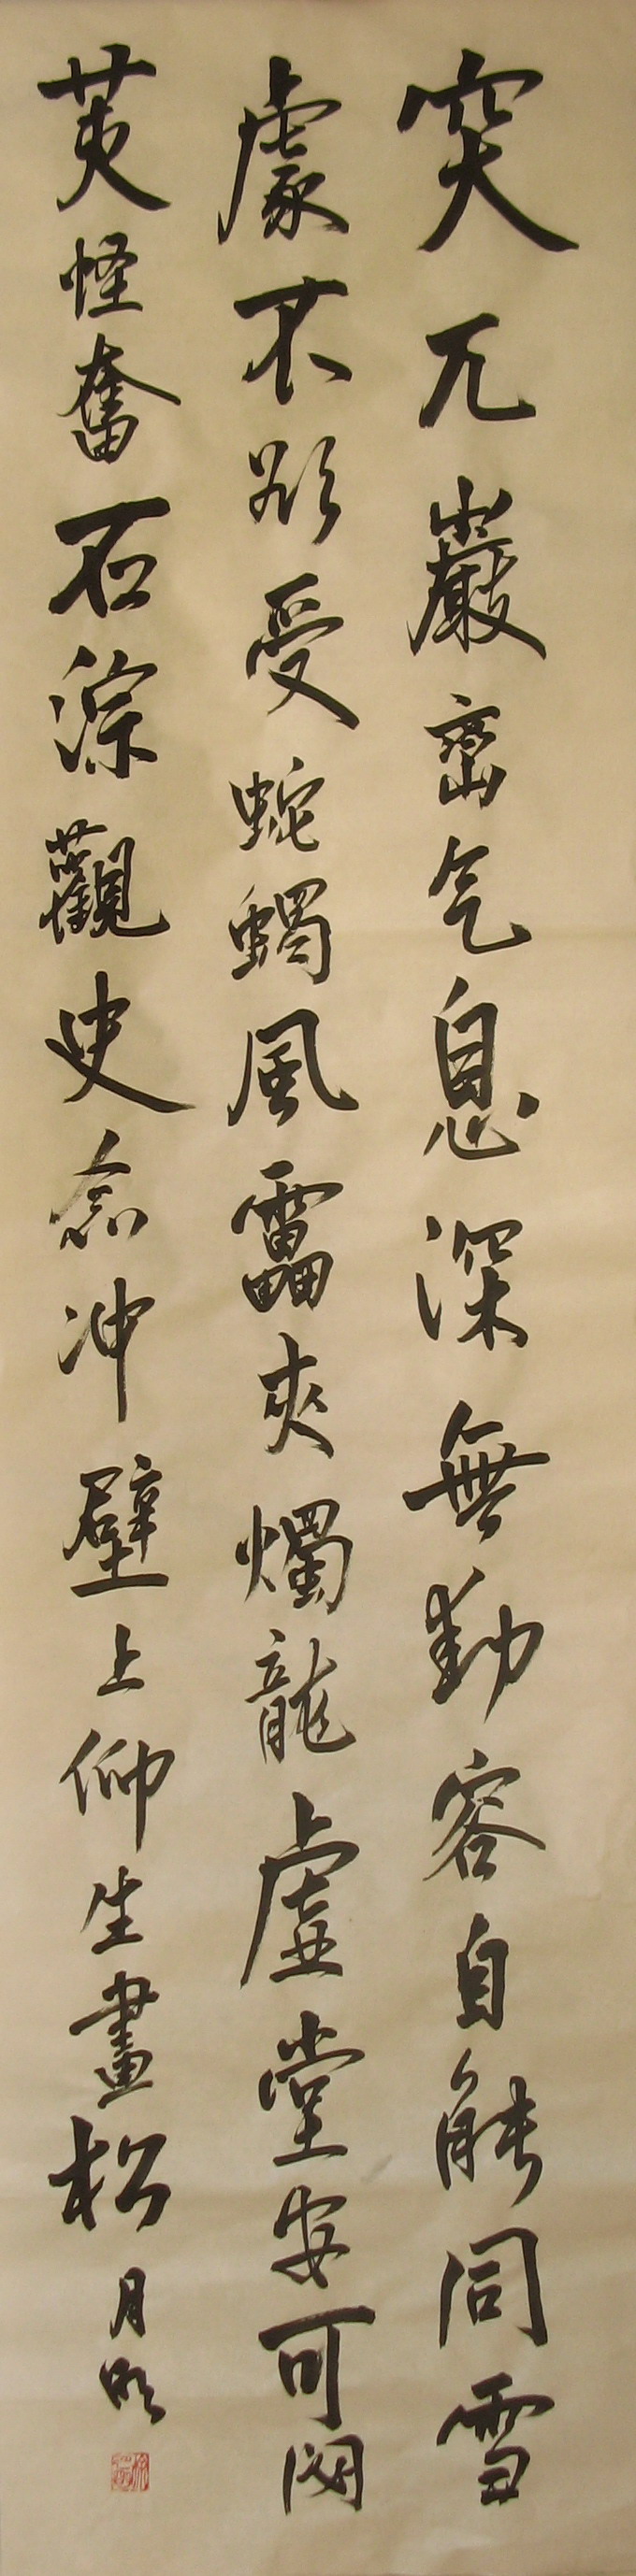 突兀巖巒气息深無動容自能同雪
處不欲受蛇蝎風靁夾燭龍虛堂安可閟
英怪奮石淙觀史念冲壁上仰生畫松月明